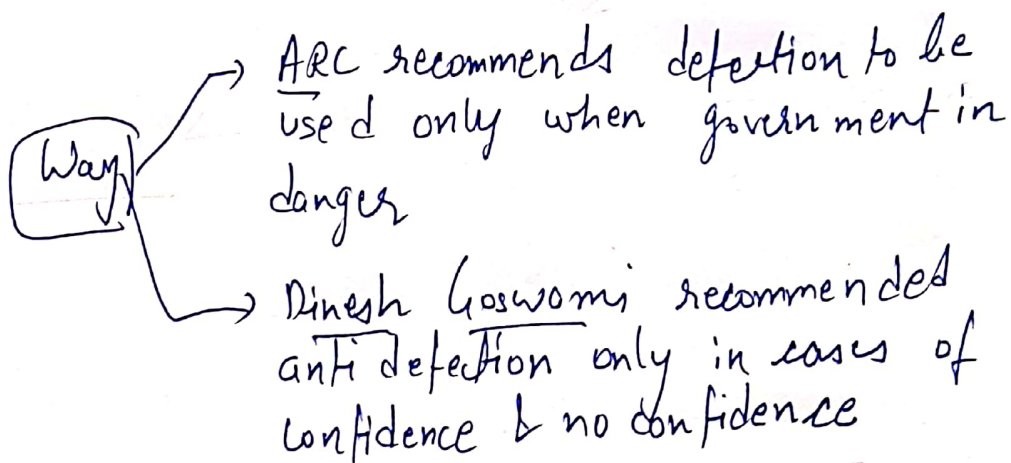 ARC recommends defection to be
used only when government in
danger
Way
Dinesh Goswami recommended
anti defection only in cases of
confidence & no confidence